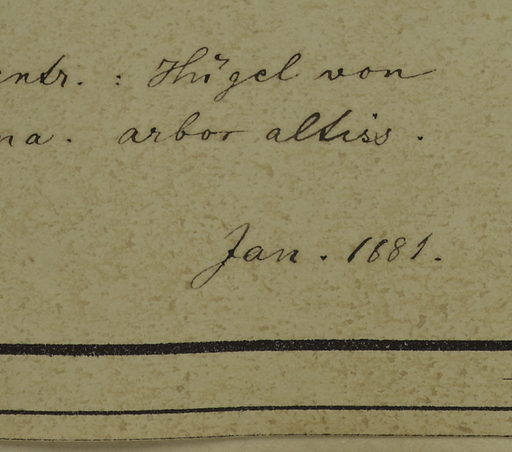 entr. : Hügel von
na. arbor altiss.
Jan. 1881.